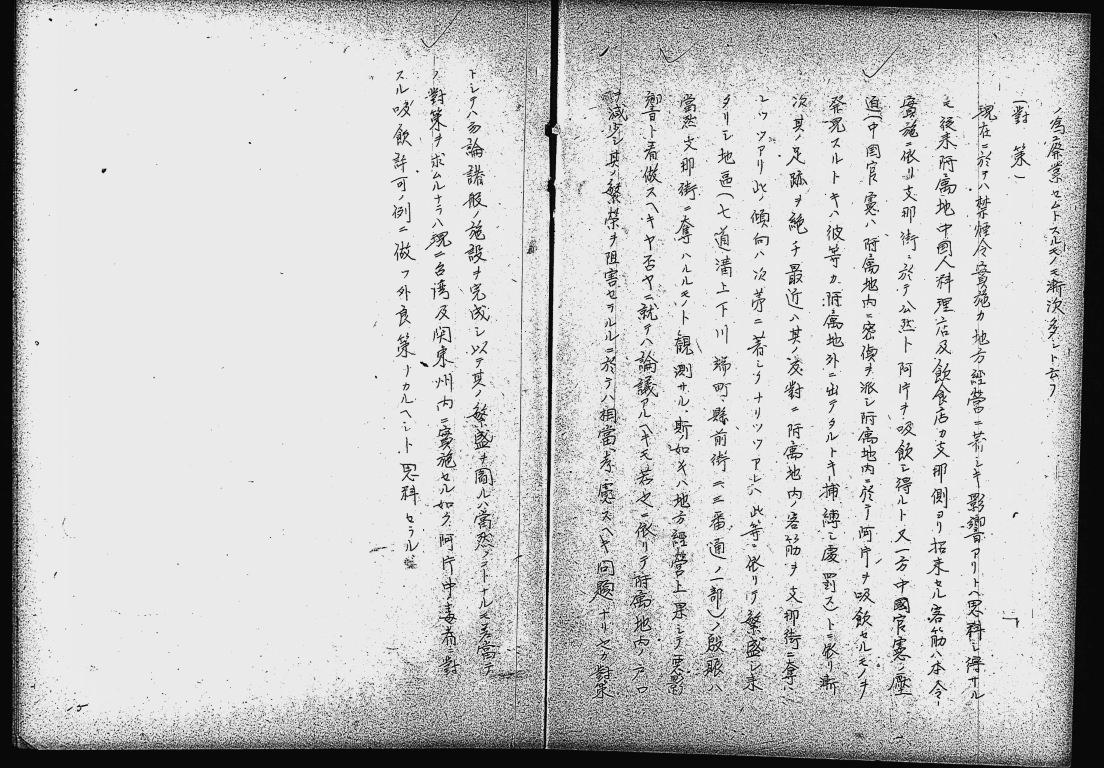 ノ為ニ廃業セムトスルモノモ漸次多シト云フ
(對策)
現在ニ於テハ禁煙令實施カ地方経営ニ著シキ影響アリトハ思料シ得サル
モ從来附属地中国人料理店及飲食店カ支那側ヨリ招来セル客筋ハ本令
實施ニ依リ支那街ニ於テ公然ト阿片ヲ吸飲シ得ルト又一方中國官憲ノ壓
迫(中国官憲ハ附属地内ニ密偵ヲ派シ附属地内ニ於テ阿片ヲ吸飲セルモノヲ
発見スルトキハ彼等カ附属地外ニ出テタルトキ捕縛シ處罰ス)トニ依リ漸
次其ノ足跡ヲ絶チ最近ハ其ノ反對ニ附属地内ノ客筋ヲ支那街ニ奪ハ
レツツアリ此ノ傾向ハ次第ニ著シクナリツツアレハ此等ニ依リテ繁盛シ来
タリシ地區(七道溝上下川端町縣前街二三番通ノ一部)ノ殷賑ハ
當然支那街ニ奪ハルルモノト観測サル斯ノ如キハ地方経営上果シテ悪影
響ト看做スヘキヤ否ヤニ就テハ論議アルヘキモ若シ之ニ依リテ附属地内ノ人口
ヲ減少シ其ノ繁栄ヲ阻害セラルルニ於テハ相當考慮スヘキ問題ナリ之カ對策
トシテハ勿論諸般ノ施設ヲ完成シ以テ其ノ繁盛ヲ圖ルハ當然ノコトナルモ差當テ
ノ對策ヲ求ムルナラハ現ニ台湾及関東州内ニ實施セル如ク阿片中毒者ニ對
スル吸飲許可ノ例ニ倣フ外良策ナカルヘシト思料セラル